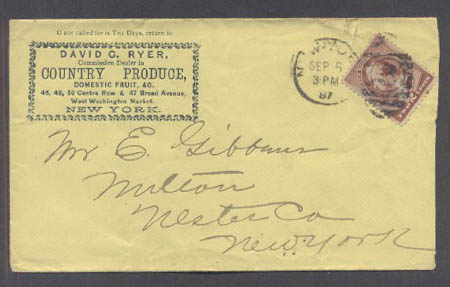 If not called for in Ten Days, return to
DAVID G. RYER,
Commission Dealer in
COUNTRY PRODUCE,
DOMESTIC FRUIT, &C.
46, 48, 50 Centre Row & 47 Broad Avenue,
West Washington Market.
NEW YORK.
SEP 5
3 PM
87
Mr E. Gibbons
Milton
Ulster Co
New York